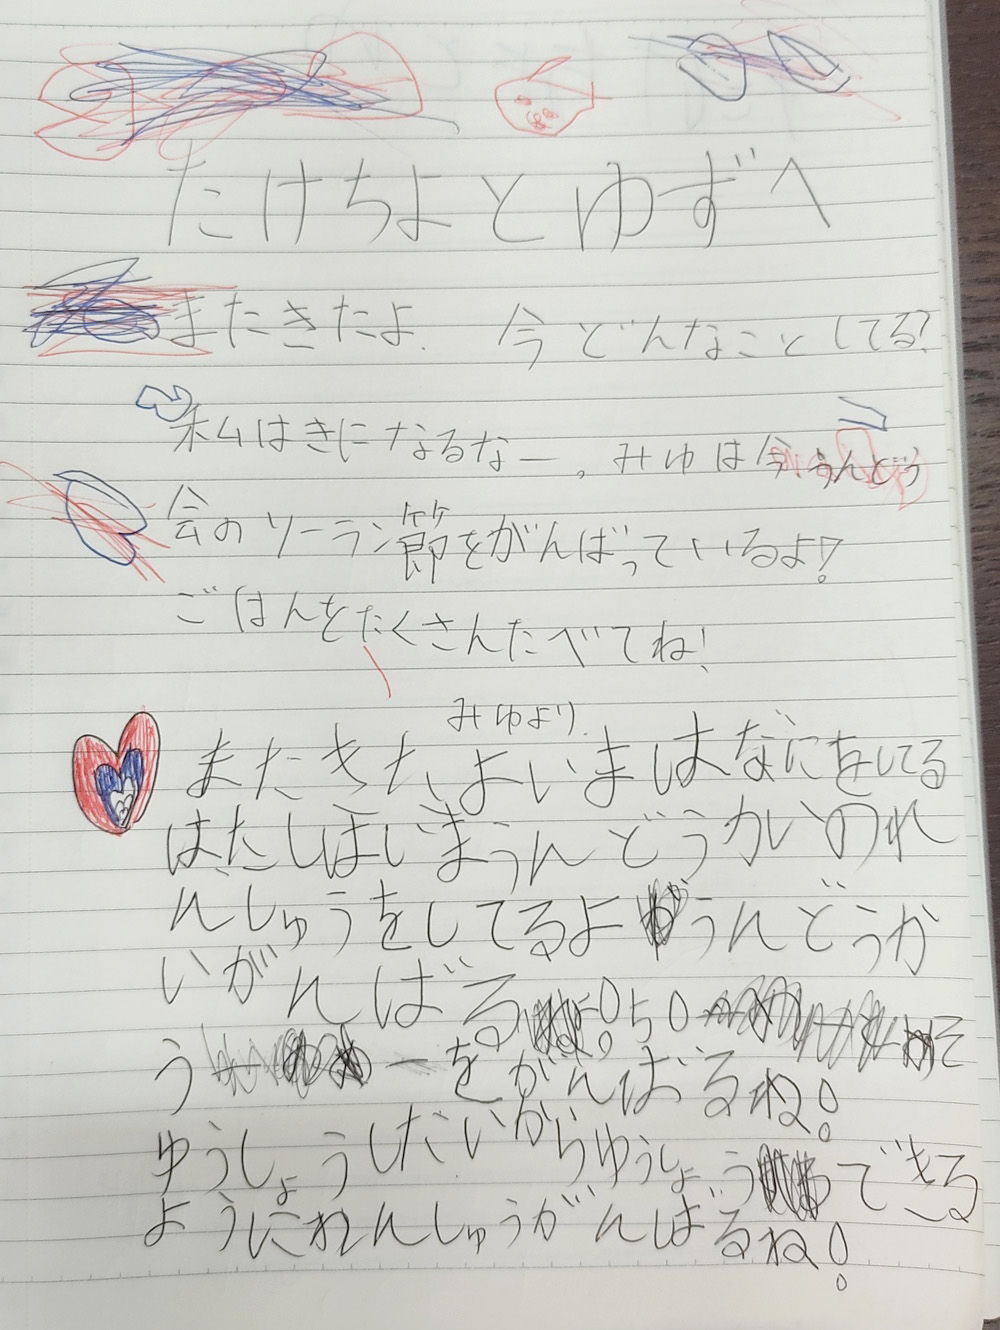 たけちよとゆずへ
またきたよ. 今どんなことしてる?
私はきになるなー。みゆは今うんどう
会のソーラン節をがんばっているよ!
ごはんをたくさんたべてね!
みゆより
またきたよいまはなにをしてる
はたしはいまうんどうかいのれ
んしゅうをしてるようんどうか
いがんばる!50そ
うーをがんばるね!
ゆうしょうしたいからゆうしょうできる
ようにれんしゅうがんばるね!